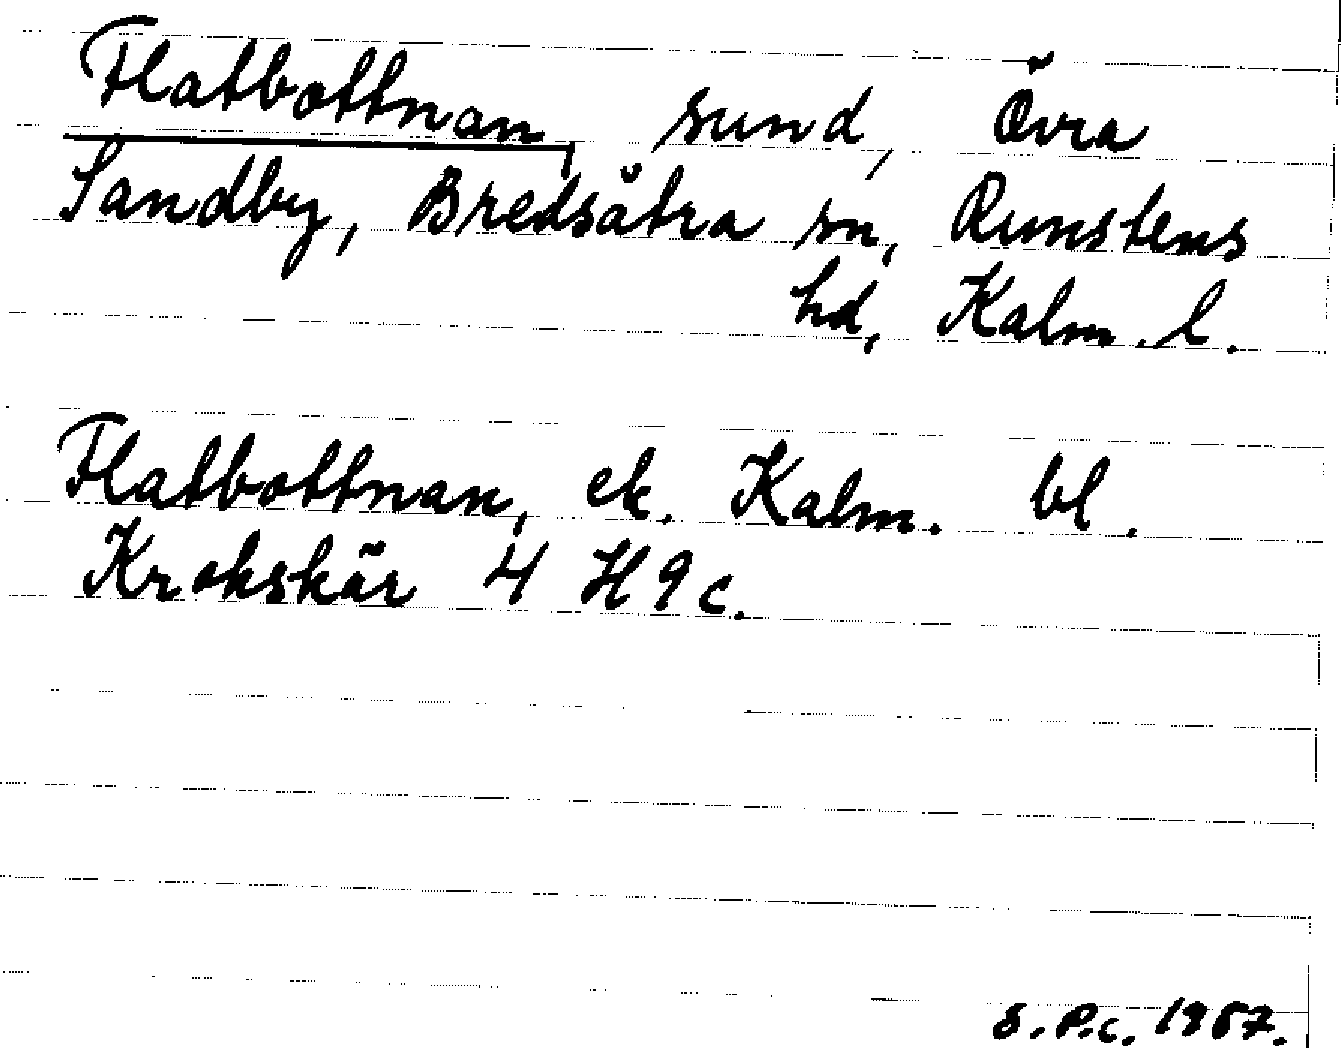 Flatbottnan, sund, Övra
Sandby, Bredsätra sn, Runstens
hd, Kalm. l.
Flatbottnan, ek. Kalm. bl.
Krokskär 4 H 9 c.
S.P.c. 1987.